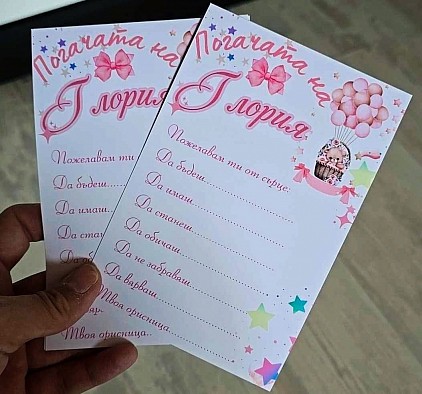 Погачата на
Глория
Пожелавам ти
Да бъдеш......
Да имаш....
Да ста
Твоя орисница..
Погачата на
Глория
Пожелавам ти от сърце:
Да бъдеш..............................
Да имаш..............................
Да станеш..............................
Да обичаш..............................
Да не забравяш..............................
Да вярваш..............................
Твоя орисница..............................